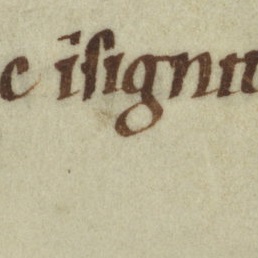 c īſignu